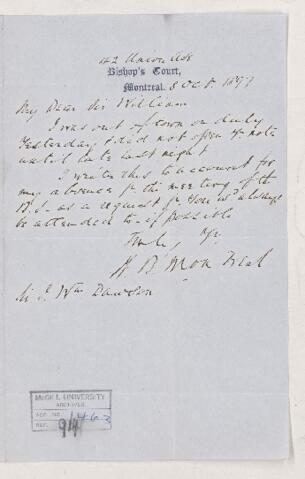 42 Union Ave
Bishop's Court,
Montreal. 8 Oct. 1897
My Dear Sir William
I was out of town on duty
yesterday & did not open yr. note
until late last night
I write this to account for
my absence fr. the meeting of the
B.S. as a request fr. you wd. always
be attended to if possible
Truly yrs.
W. B. Montreal
Sir J. Wm Dawson
McGILL UNIVERSITY
ARCHIVES
ACC. NO. 1463
REF. 914